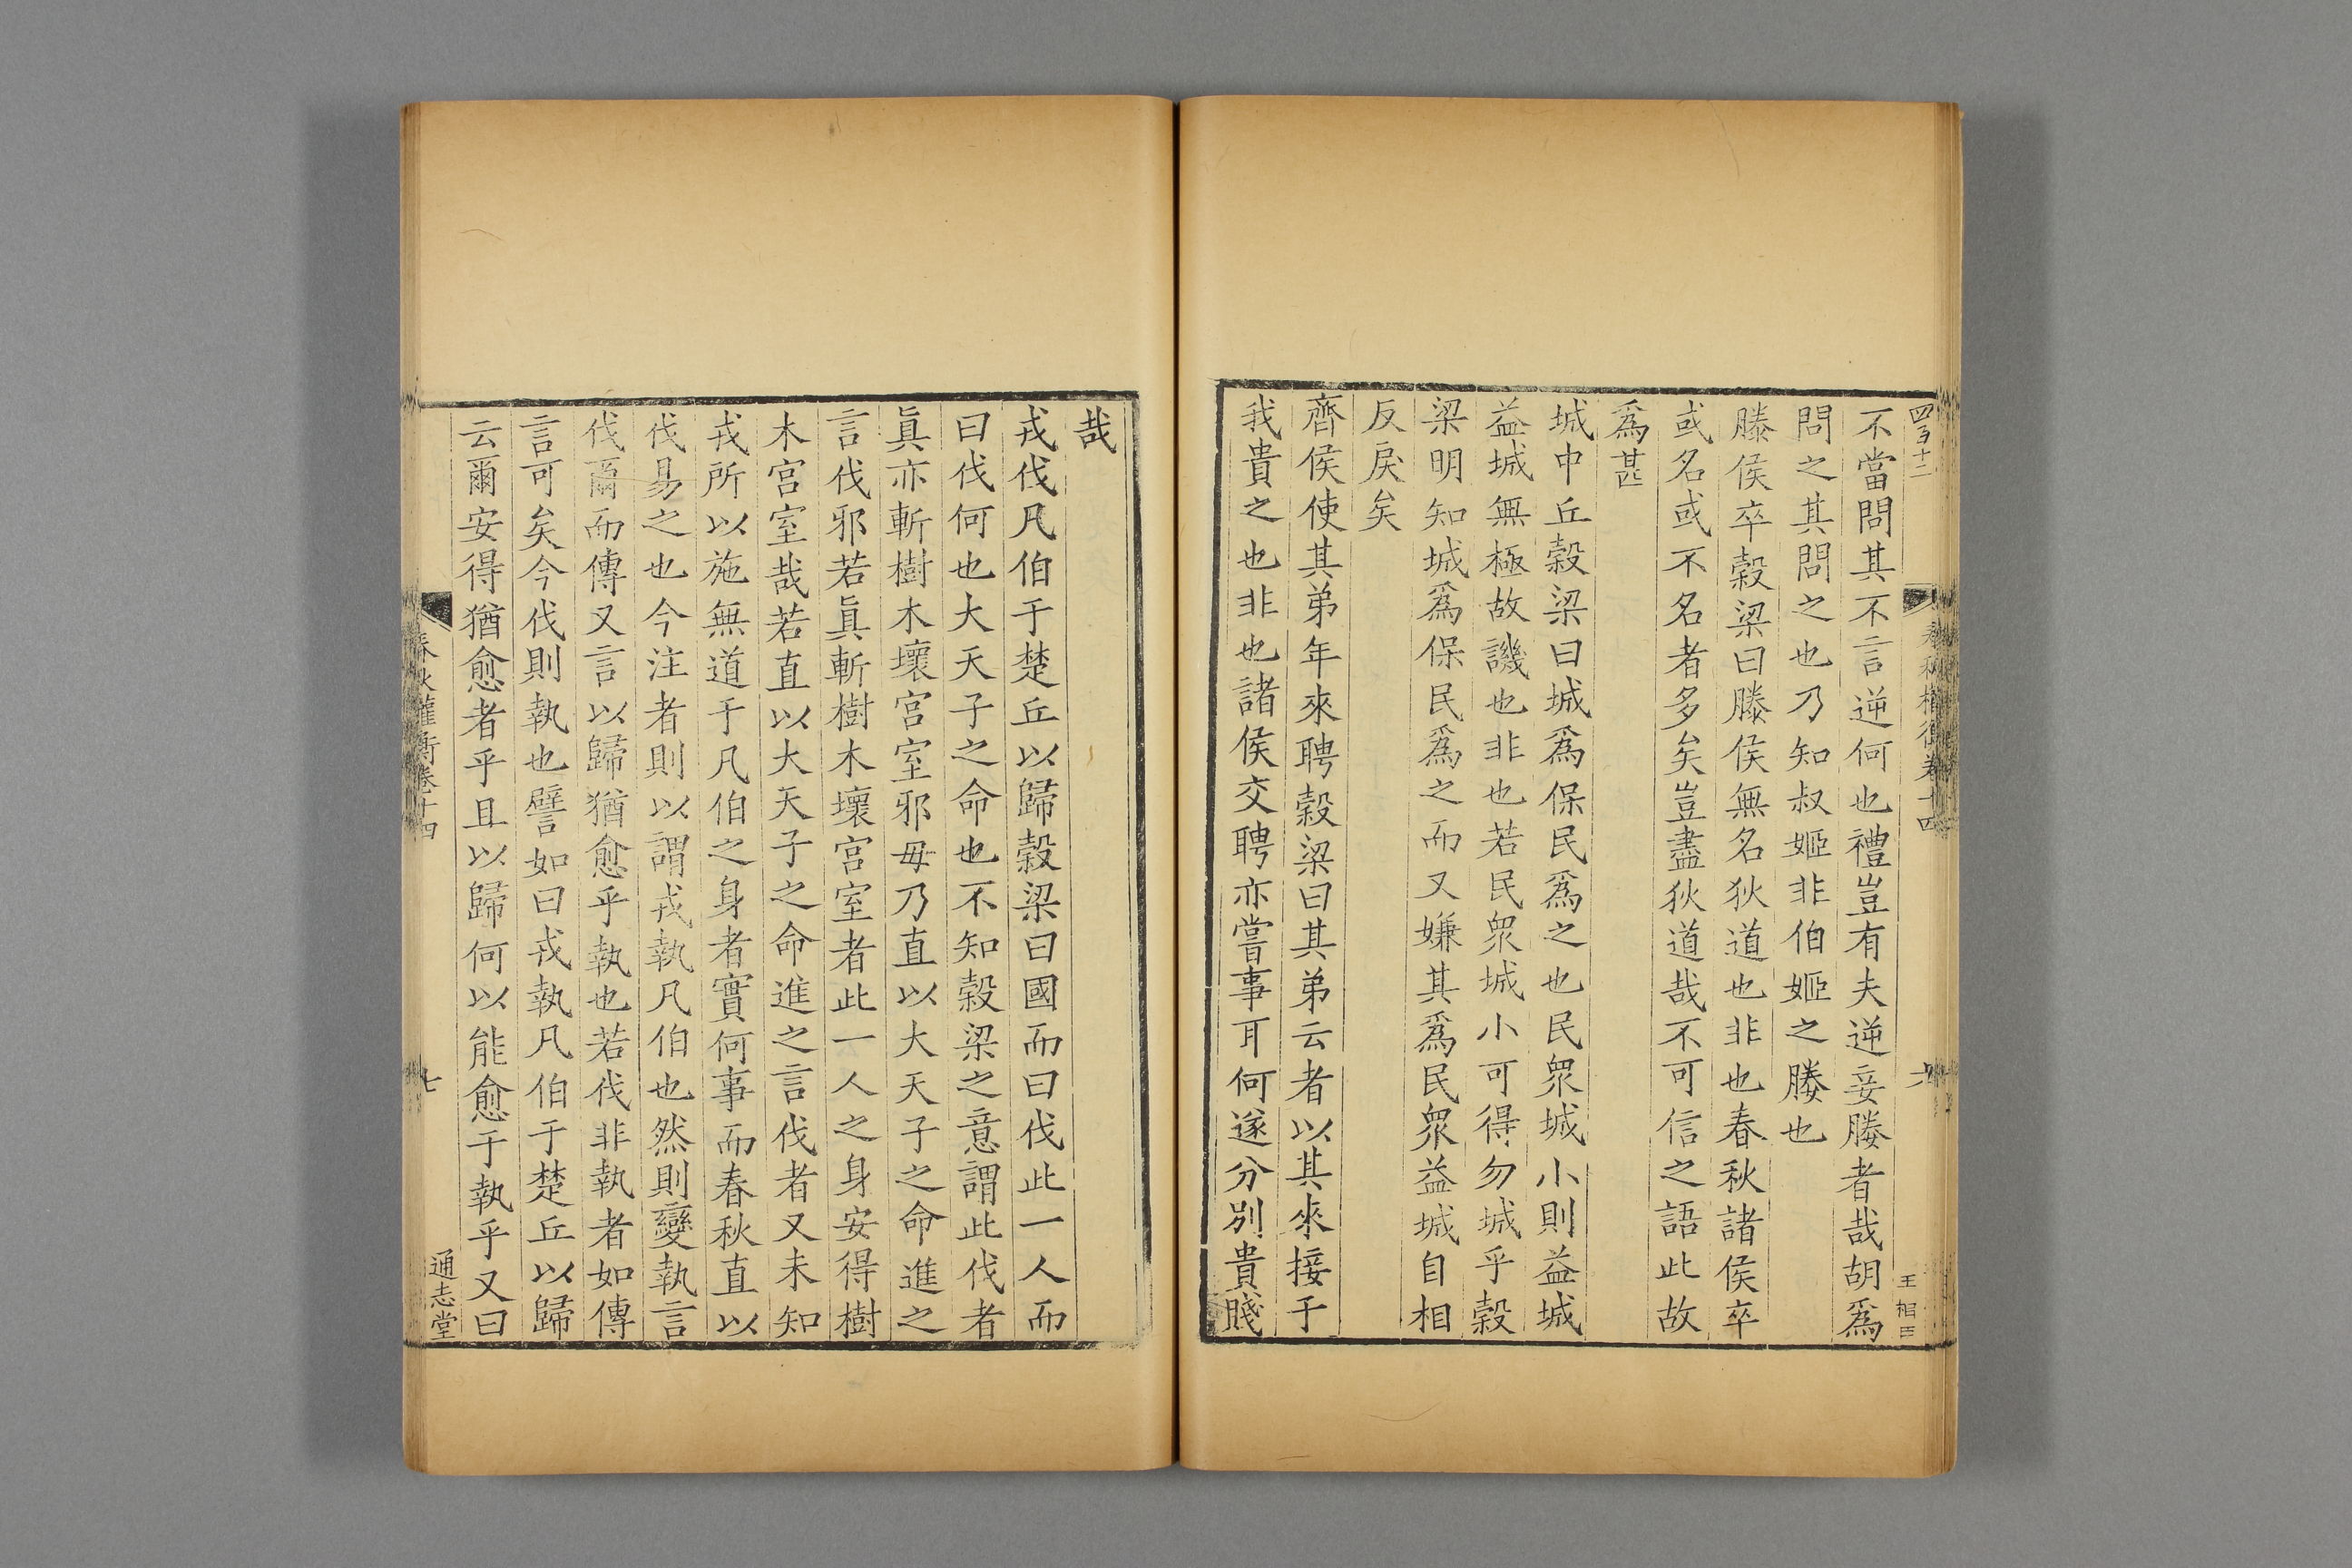 不當問其不言逆何也禮豈有夫逆妾媵者哉胡爲
問之其問之也乃知叔姬非伯姬之媵也
滕侯卒榖梁曰滕侯無名狄道也非也春秋諸侯卒
或名或不名者多矣豈盡狄道哉不可信之語此故
爲甚
城中丘榖梁曰城爲保民爲之也民衆城小則益城
益城無極故譏也非也若民衆城小可得勿城乎榖
梁明知城爲保民爲之而又嫌其爲民衆益城自相
反戾矣
齊侯使其弟年來聘榖梁曰其弟云者以其來接于
我貴之也非也諸侯交聘亦嘗事耳何遂分別貴賤
哉
戎伐凡伯于楚丘以歸榖梁曰國而曰伐此一人而
曰伐何也大天子之命也不知榖梁之意謂此伐者
眞亦斬樹木壞宮室邪毋乃直以大天子之命進之
言伐邪若眞斬樹木壞宮室者此一人之身安得樹
木宮室哉若直以大天子之命進之言伐者又未知
戎所以施無道于凡伯之身者實何事而春秋直以
伐易之也今注者則以謂戎執凡伯也然則變執言
伐爾而傳又言以歸猶愈乎執也若伐非執者如傳
言可矣今伐則執也譬如曰戎執凡伯于楚丘以歸
云爾安得猶愈者乎且以歸何以能愈于執乎又曰
春秋權衡卷十四
七
通志堂